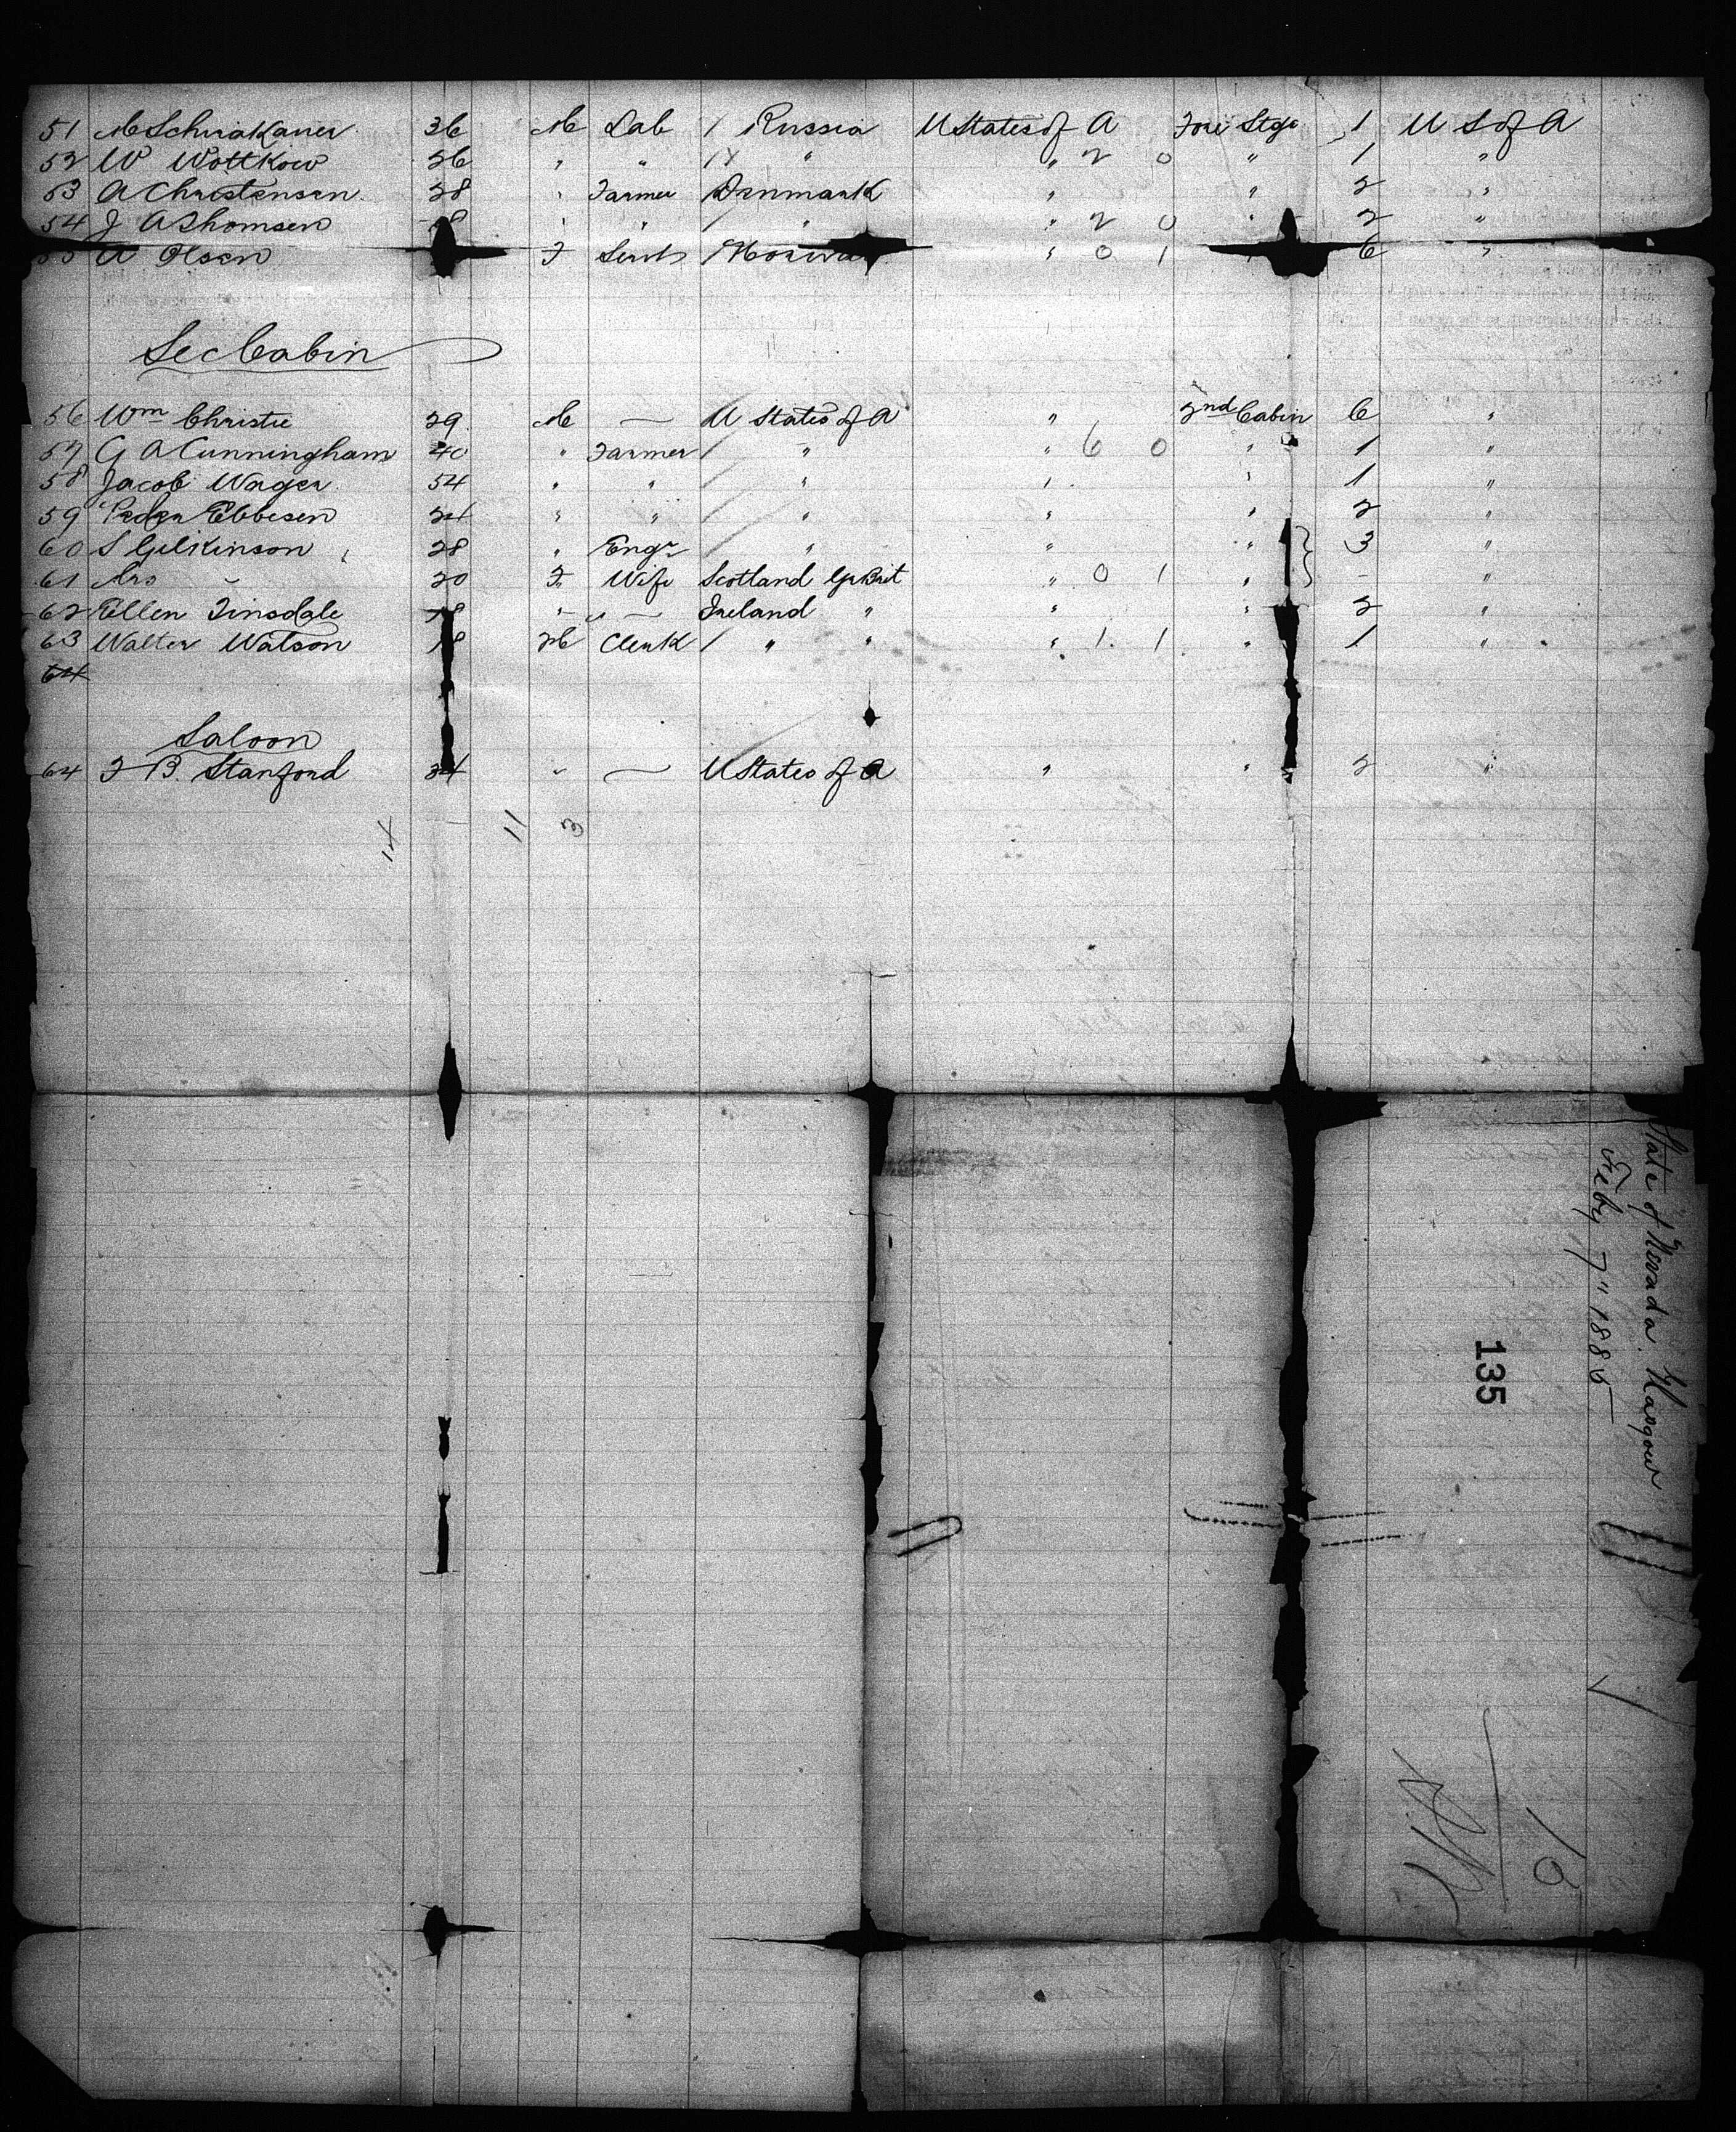 51 M Schirakauer 36 M Lab / Russia U States of A Fore Stge 1 U S of A
52 W Wottkow 26 " " / " " 2 0 " 1 "
53 A Christensen 28 " Farmer Denmark " " 2 "
54 J A Thomsen " " / " " 2 0 " 2 "
55 A Olsen F Servt / Norway " 0 1 " 6 "
Sec Cabin
56 Wm Christie 29 M — U States of A " 2nd Cabin 6 "
57 G A Cunningham 40 " Farmer / " " 6 0 " 1 "
58 Jacob Wager 54 " " / " " " 1 "
59 Peder Ebbesen 24 " " / " " " 2 "
60 S Gilkinson 28 " Engr / " " " 3 "
61 Mrs " 20 F Wife Scotland Gr Brit " 0 1 " - "
62 Ellen Tinsdale " — Ireland " " " 2 "
63 Walter Watson M Clerk / " " " 1 1 " 1 "
64
Saloon
64 F B Stanford 34 " — U States of A " " 2 "
14 11 3
State of Nevada. Glasgow
Feby 7" 1885
135
10